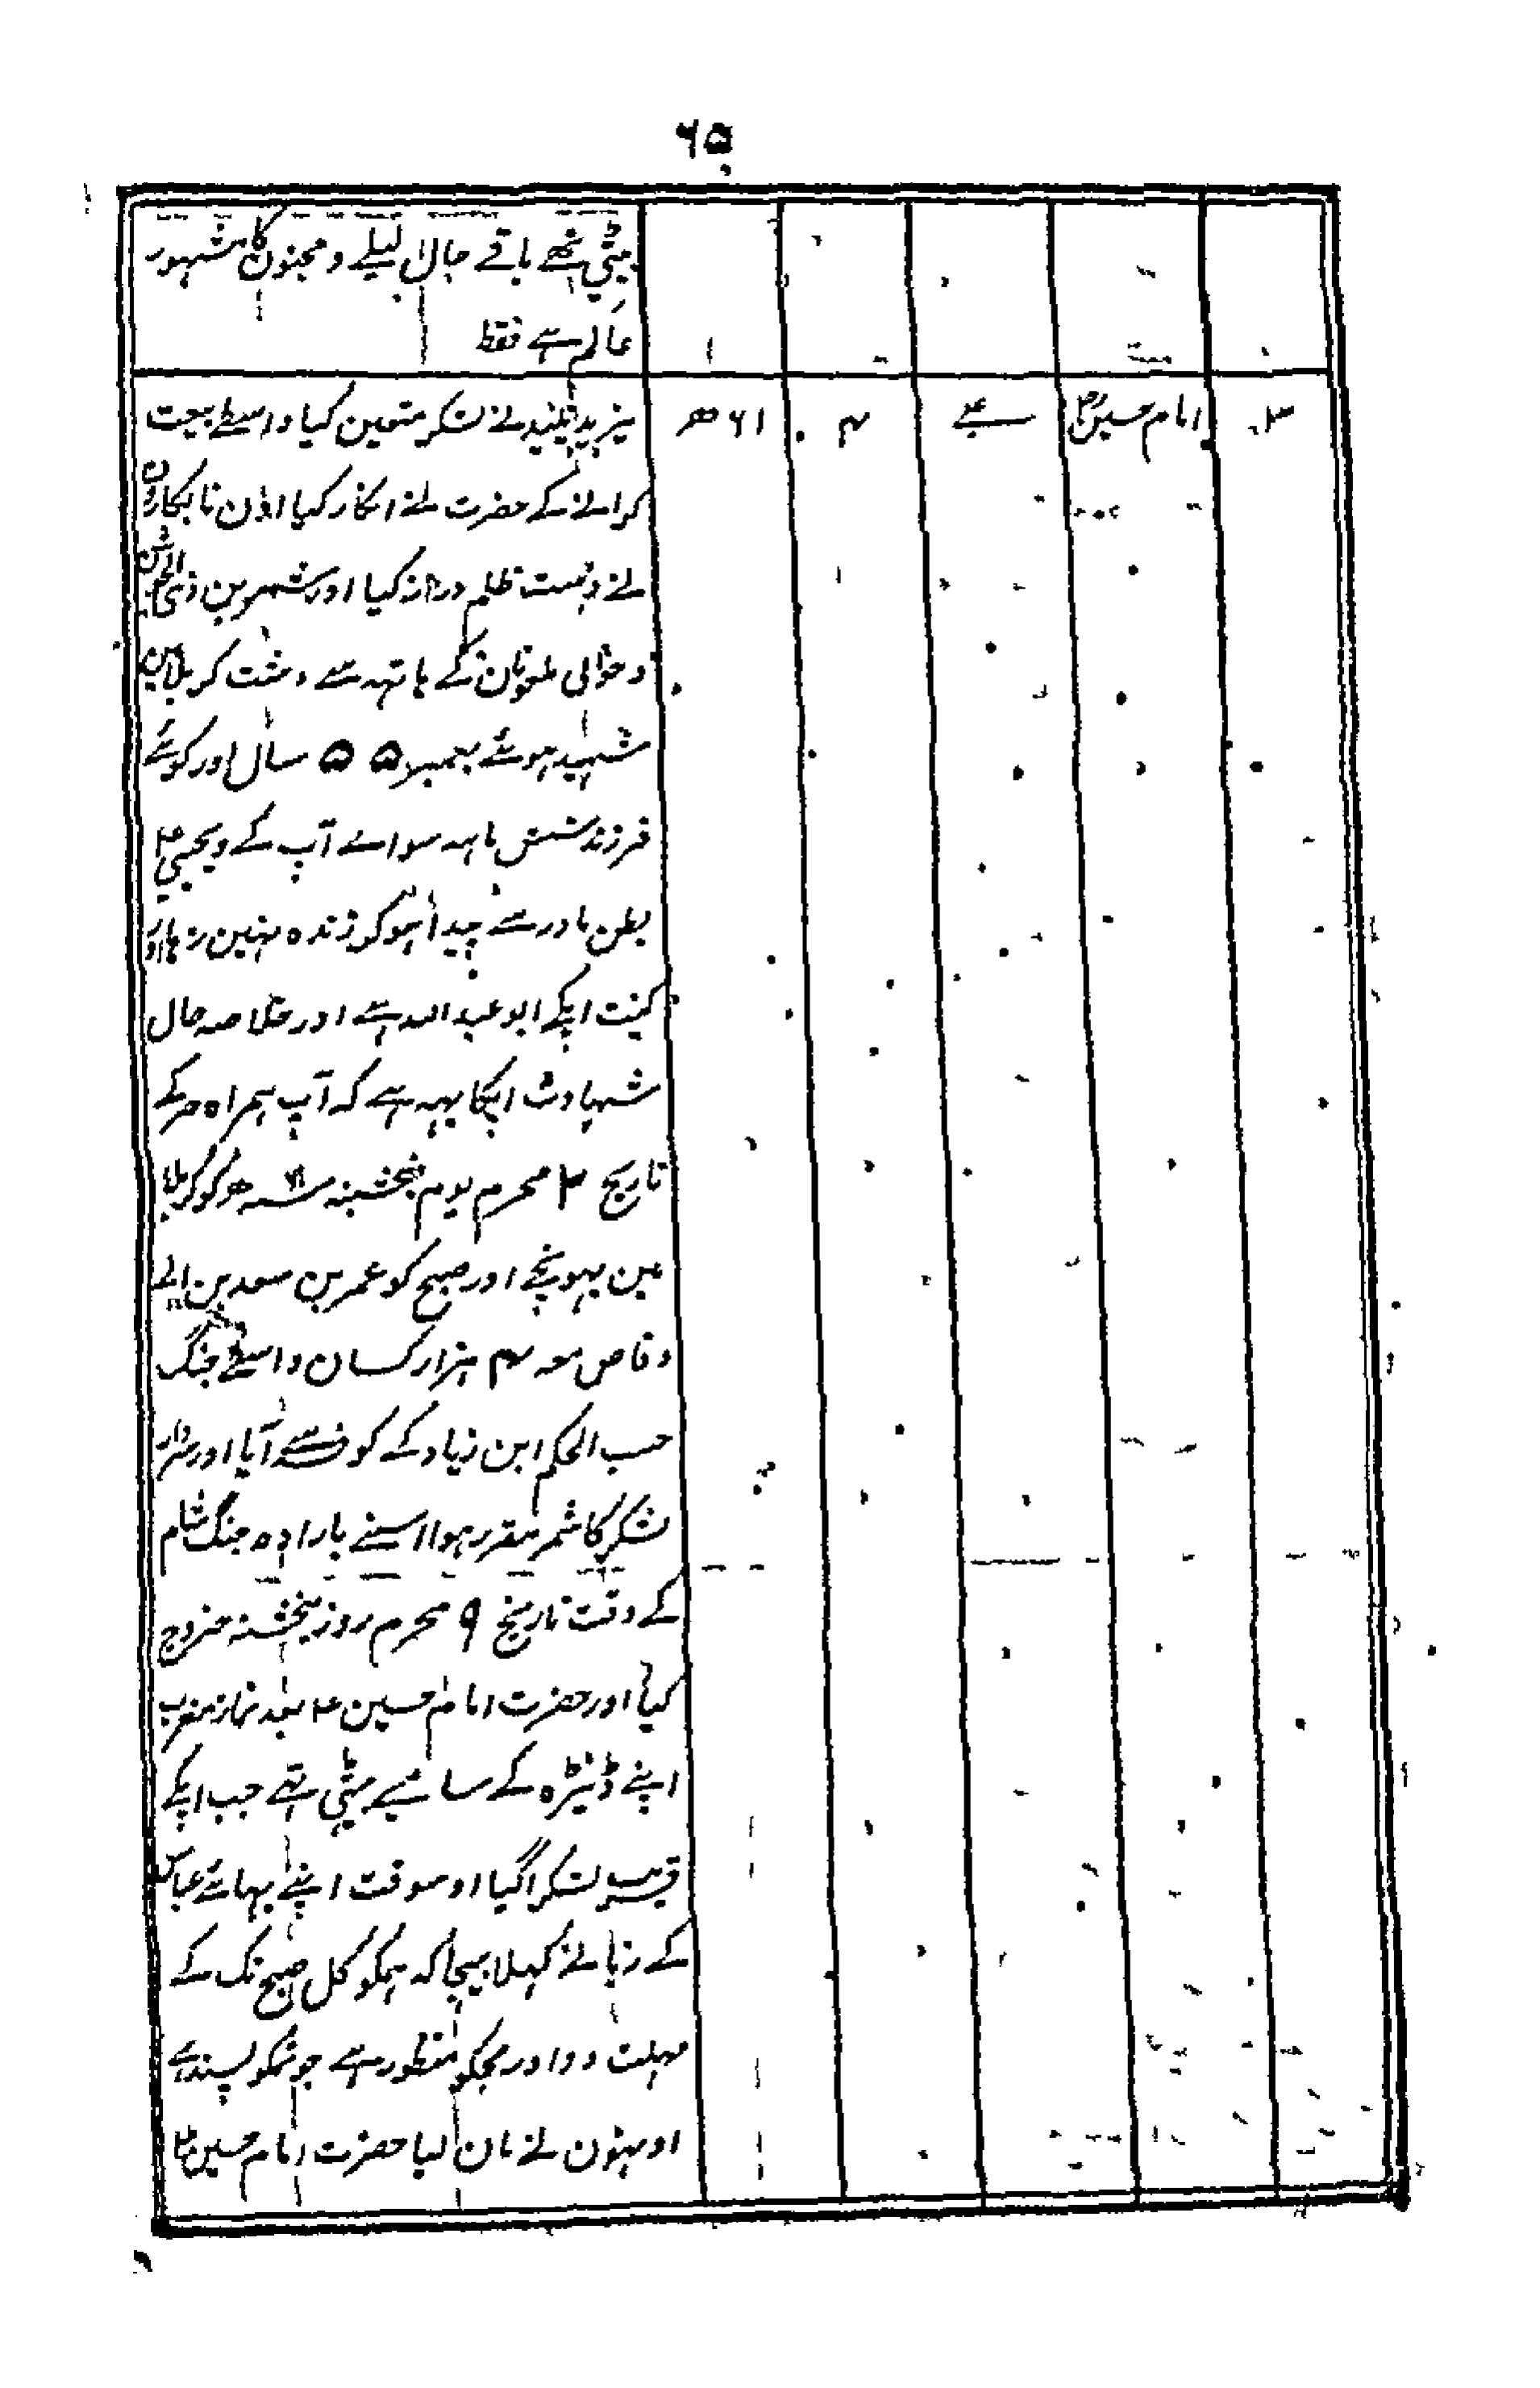 ۶۵
بیٹی تھے باقے حال لیلے و مجنون کا مشہور
عالم ہے فقط
۳ امام حسینؑ علے ۴ ۶۱ ھ یزید پلید نے لشکر متعین کیا واسطے بیعت
کرانے کے حضرت نے انکار کیا اون نابکارون
نے دست ظلم دراز کیا اور شمر بن ذی الجوشن
و خولی ملعونان کے ہاتہہ سے دشت کربلا مین
شہید ہوئے بعمر ۵۵ سال اور کوئے
فرزند شش ماہہ سواے آپ کے و یحییٰ ؑ
بطن مادر سے پیدا ہو کر زندہ نہین رہا اور
کنیت اپکے ابو عبد اللہ ہے اور خلاصہ حال
شہادت اپکا یہہ ہے کہ آپ ہمراہ حر کے
تاریخ ۲ محرم یوم پنجشنبہ ۶۱ سنہ ھ کو کربلا
مین پہونچے اور صبح کو عمر بن سعد بن ابے
وقاص معہ ۴ ہزار کسان واسطے جنگ
حسب الحکم ابن زیاد کے کوفہ سے آیا اور سردار
لشکر کا شمر مقرر ہوا اسنے بارادہ جنگ شام
کے وقت تاریخ ۹ محرم روز پنجشنبہ خروج
کیا اور حضرت امام حسین ؑ بعد نماز مغرب
اپنے ڈیڑہ کے سامنے بیٹہی تہے جب اپکے
قریب لشکر اگیا اوسوقت اپنے بہائے عباس
کے زبانے کہلا بہیجا کہ ہمکو کل صبح تک کے
مہلت دو اور مجکو منظور ہے جو تمکو پسند ہے
اونہون نے مان لیا حضرت امام حسین ؑ